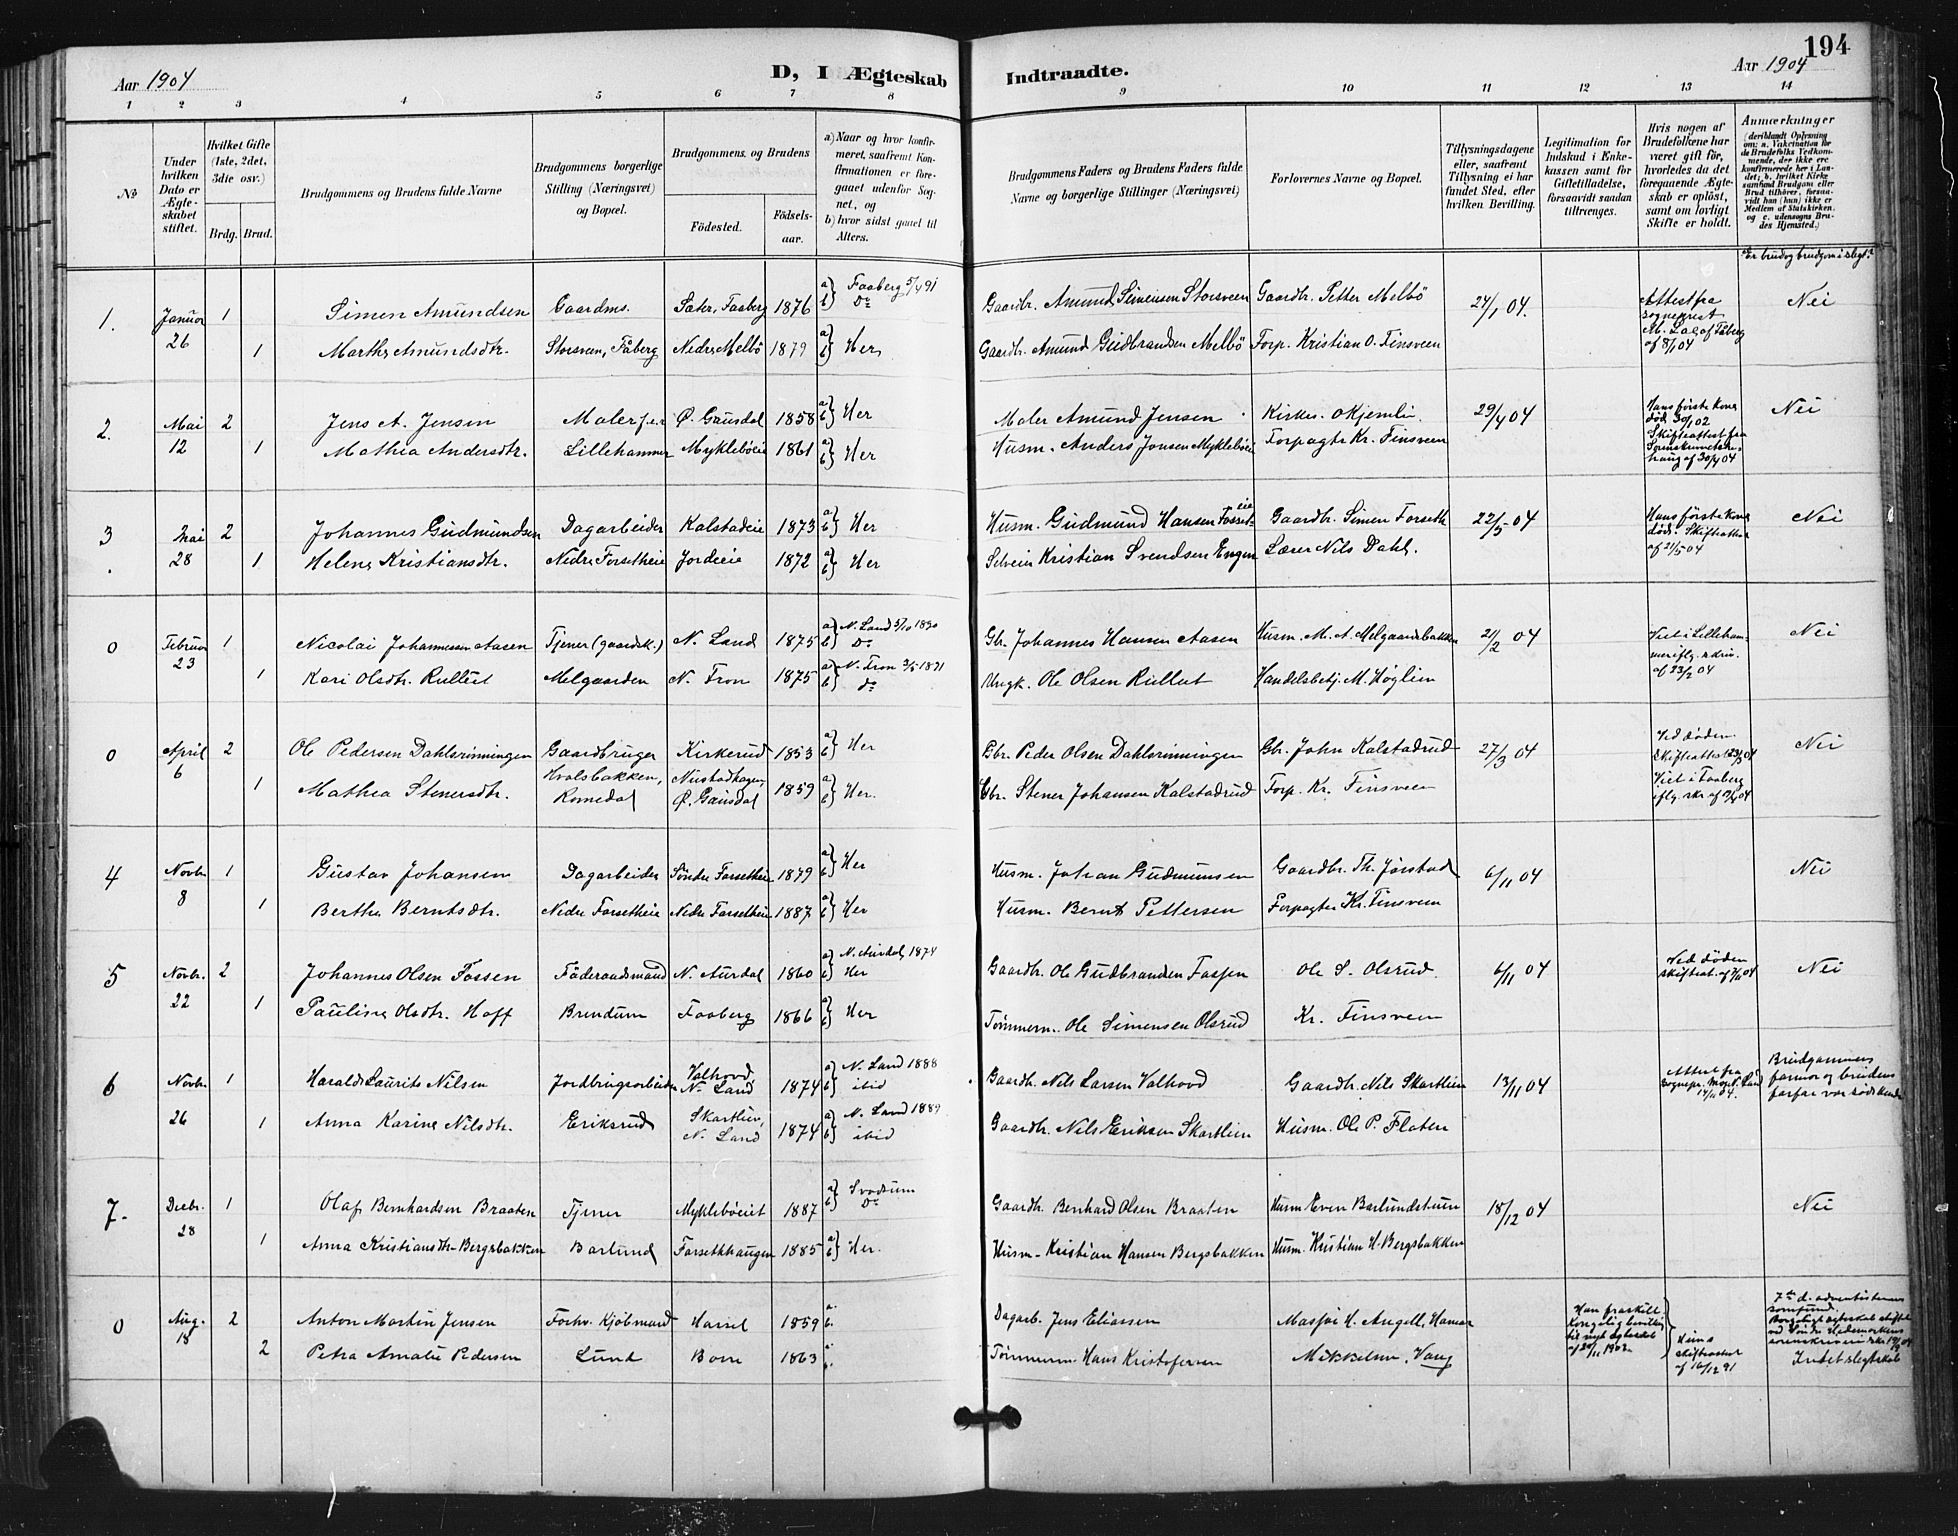 194
Aar 1904
D, I Ægteskab Indtraadte.
Aar 1904
1 2 3 4 5 6 7 8 9 10 11 12 13 14
No
Under hvilken Dato er Ægteskabet stiftet.
Hvilket Gifte (1ste, 2det, 3die osv.)
Brdg. Brud.
Brudgommens og Brudens fulde Navne
Brudgommens borgerlige Stilling (Næringsvei) og Bopæl.
Brudgommens og Brudens
Födested.
Födselsaar.
a) Naar og hvor konfirmeret, saafremt Konfirmationen er foregaaet udenfor Sognet, og
b) hvor sidst gaaet til Alters.
Brudgommens Faders og Brudens Faders fulde Navne og borgerlige Stillinger (Næringsvei)
Forlovernes Navne og Bopæl.
Tillysningsdagene eller, saafremt Tillysning ei har fundet Sted, efter hvilken Bevilling.
Legitimation for Indskud i Enkekassen samt for Giftetilladelse, forsaavidt saadan tiltrænges.
Hvis nogen af Brudefolkene har været gift för, hvorledes da det foregaaende Ægteskab er oplöst, samt om lovligt Skifte er holdt.
Anmærkninger
(deriblandt Oplysning om: a. Vakcination for de Brudefolks Vedkommende, der ikke ere konfirmerede her i Landet; b. hvilket Kirkesamfund Brudgom eller Brud tilhörer, forsaavidt han (hun) ikke er Medlem af Statskirken, og c. udensogns Brudes Hjemsted.)
Er brud og brudgom i slegt?
1. Januar 26 1 Simen Amundsen Gaardms. Sater, Faaberg 1876 a) b) Faaberg 5/4 91 Do Gaardbr. Amund Simensen Storsveen Gaardbr. Petter Melbö 24/1 04. Attest fra sogneprest M. Lag af Fåberg af 8/1 04 Nei
1 Marthe Amundsdtr. Storsveen, Fåberg Nedre Melbö 1879 a) b) Her Gaardbr. Amund Gudbrandsen Melbö Forp. Kristian O. Finsveen
2. Mai 12 2 Jens A. Jensen Maler f.e.r Ø. Gausdal 1858 a) b) Her Maler Amund Jensen Kirkes. O Kjemlie 29/4 04 Hans første Kone död 30/1 02 Skifteattest fra af 30/4 04 Nei
1 Mathea Andersdtr. Lillehammer Myklebøeie 1861 a) b) Her Husm. Anders Jonsen Myklebøeie Forpagter Kr. Finsveen
3. Mai 28 2 Johannes Gudmundsen Dagarbeider Kalstadeie 1873 a) b) Her Husm. Gudmund Hansen Gaardbr. Simen Forseth 22/5 04 Hans første Kone död. Skifteattest af 21/5 04 Nei
1 Helene Kristiansdtr. Nedre Forsetheie Jordeie 1872 a) b) Her Selveier Kristian Svendsen Engen Lærer Nils Dahl.
0 Februar 23 1 Nicolai Johannessen Aasen Tjener (gaardsk.) N. Land 1875 a) b) N. Land 5/10 1890 Do Gbr. Johannes Hansen Aasen Husm. M. A. Melgaardsbakken 21/2 04 Viet i Lillehammer iflg. af 23/2 04 Nei
1 Kari Olsdtr. Rullut Melgaarden N. Fron 1875 a) b) N. Fron 1891 do Ungk. Ole Olsen Rullut Handelsbetj. M. Høglien
0 April 6 2 Ole Pedersen Dahlsrinningen Gaardbruger Kirkerud 1853 a) b) Her Gbr. Peder Olsen Dahlsrinningen Gbr. John Kalstadrud 27/3 04 Ved döden Skifteattest 04 Viet i Faaberg iflg. skr af 04 Nei
1 Mathea Stenersdtr. Hvalsbakken, Romedal Nustadhagen, Ø. Gausdal 1859 a) b) Her. Gbr. Stener Johansen Kalstadrud Forp. Kr. Finsveen
4 Novbr. 8 1 Gustav Johansen Dagarbeider Søndre Forsetheie 1879 a) b) Her Husm. Johan Gudmunsen Gaardbr. Th. Jørstad 6/11 04 Nei
1 Berthe Berntsdtr. Nedre Forsetheie Nedre Forsetheie 1887 a) b) Her Husm. Bernt Pettersen Forpagter Kr. Finsveen
5 Novbr. 22 2 Johannes Olsen Fossen Föderaadsmand N. Aurdal 1860 a) b) N. Aurdal 1874 Her Gaardbr. Ole Gudbrandsen Fossen Ole S. Olsrud. 6/11 04 Ved döden skifteat. af 7/11 04 Nei
1 Pauline Olsdtr. Hoff Brendum Faaberg 1866 a) b) Her Tømmerm. Ole Simensen Olsrud Kr. Finsveen
6 Novbr. 26 1 Harald Laurits Nilsen Jordbrugsarbeider Valhovd, N. Land 1874 a) b) N. Land 1888 ibid Gaardbr. Nils Larsen Valhovd Gaardbr. Nils Skartlien 13/11 04 Attest fra Sognepr. Moe N. Land 14/11 04. Brudgommens farmor og brudens farfar var södskende
1 Anna Karine Nilsdtr. Eriksrud Skartlien, N. Land 1874 a) b) N. Land 1889 ibid Gaardbr. Nils Eriksen Skartlien Husm. Ole P. Floten
7. Decbr. 28 1 Olaf Bernhardsen Braaten Tjener Myklebøeiet 1887 a) b) Svatsum Do Gaardbr. Bernhard Olsen Braaten Husm Even Barlundstuen 18/12 04 Nei
1 Anna Kristiansdtr. Bergsbakken Barlund Forsethhaugen 1885 a) b) Her. Husm. Kristian Hansen Bergsbakken Husm. Kristian H. Bergsbakken
0 Aug. 18 2 Anton Martin Jensen Forhv. Kjöbmand 1859 a. b. Dagarb. Jens Eliassen H. Angell, Hamar Han fraskilt. Kongelig bevilling til nyt ægteskab af 1902 7de d. adventisternes samfund. Borgeligt ægteskab stiftet ved Søndre Hedemarkens sorenskriveri
2 Petra Amalie Pedersen Lund 1863 a. b. Tømmerm. Hans Kristofersen Mikkelsen, Vang Hens skifteattest af 10/12 91 Intet slegtskab